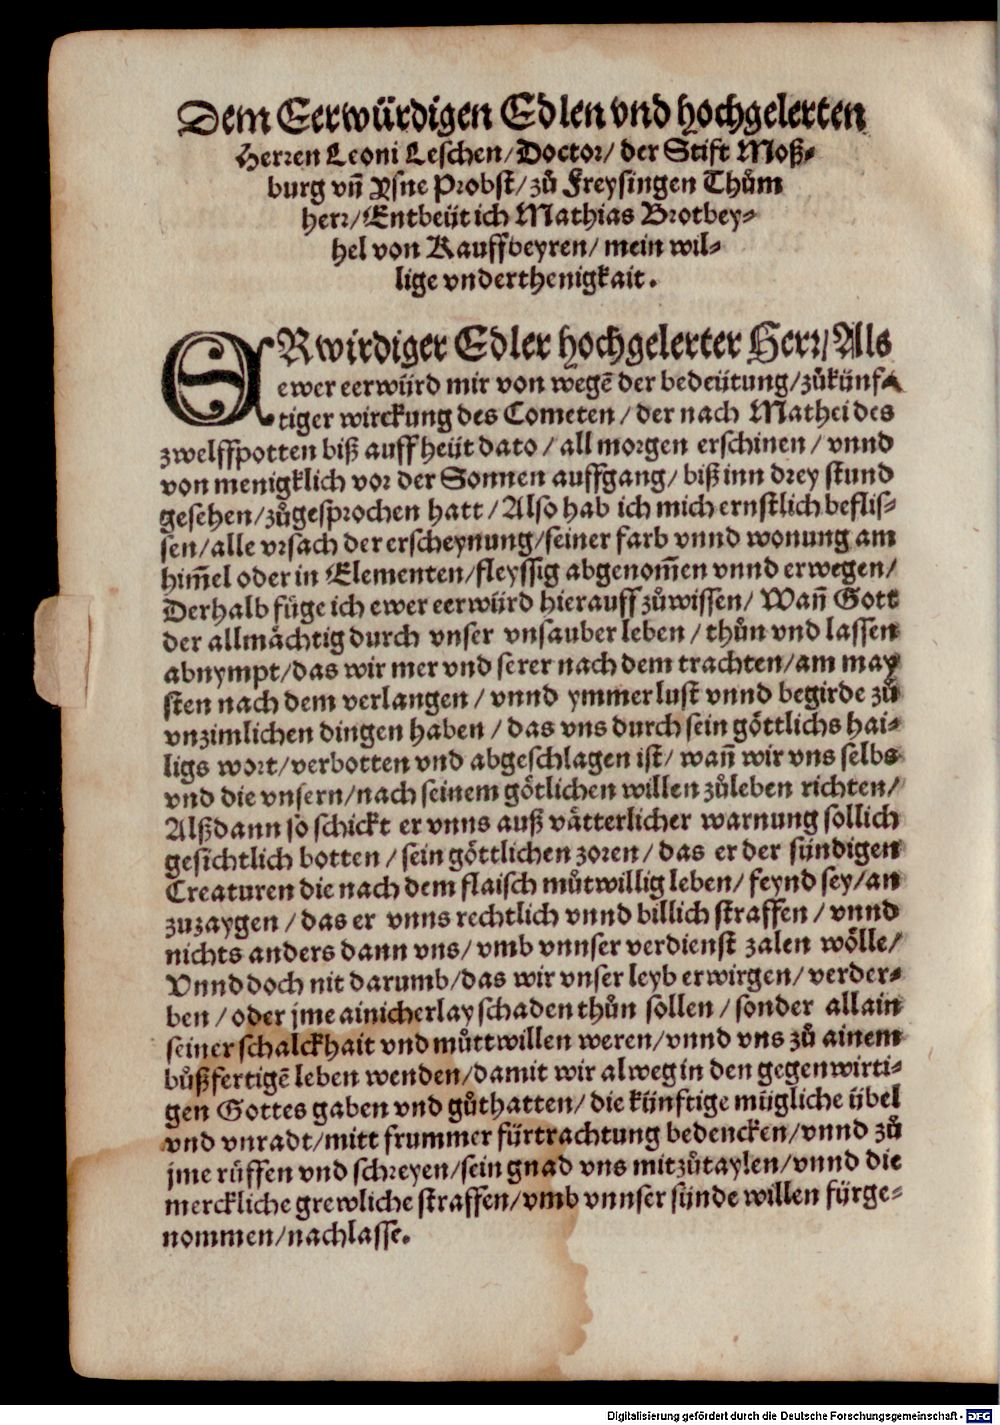 Dem Eerwürdigen Edlen vnd hochgelerten
Herren Leoni Leschen/ Doctor/ der Stift Moß⸗
burg vñ Ysne Probst/ zů Freysingen Thům
herr/ Entbeüt ich Mathias Brotbey⸗
hel von Kauffbeyren/ mein wil⸗
lige vnderthenigkait.
ERwirdiger Edler hochgelerter Herr/ Als
ewer eerwürd mir von wegē der bedeütung/ zůkünf⸗
tiger wirckung des Cometen/ der nach Mathei des
zwelffpotten biß auff heüt dato/ all morgen erschinen/ vnnd
von menigklich vor der Sonnen auffgang/ biß inn drey stund
gesehen/ zůgesprochen hatt/ Also hab ich mich ernstlich beflis⸗
sen/ alle vrsach der erscheynung/ seiner farb vnnd wonung am
him̄el oder in Elementen/ fleyssig abgenom̄en vnnd erwegen/
Derhalb füge ich ewer eerwürd hierauff zůwissen/ Wañ Gott
der allmächtig durch vnser vnsauber leben/ thůn vnd lassen
abnympt/ das wir mer vnd serer nach dem trachten/ am may
sten nach dem verlangen/ vnnd ymmer lust vnnd begirde zů
vnzimlichen dingen haben/ das vns durch sein göttlichs hai⸗
ligs wort/ verbotten vnd abgeschlagen ist/ wañ wir vns selbs
vnd die vnsern/ nach seinem götlichen willen zůleben richten/
Alßdann so schickt er vnns auß vätterlicher warnung sollich
gesichtlich botten/ sein göttlichen zoren/ das er der sündigen
Creaturen die nach dem flaisch můtwillig leben/ feynd sey/ an
zuzaygen/ das er vnns rechtlich vnnd billich straffen/ vnnd
nichts anders dann vns/ vmb vnnser verdienst zalen wölle/
Vnnd doch nit darumb/ das wir vnser leyb erwirgen/ verder⸗
ben/ oder jme ainicherlay schaden thůn sollen/ sonder allain
seiner schalckhait vnd můttwillen weren/ vnnd vns zů ainem
bůßfertigē leben wenden/ damit wir alweg in den gegenwirti⸗
gen Gottes gaben vnd gůthatten/ die künftige mügliche übel
vnd vnradt/ mitt frummer fürtrachtung bedencken/ vnnd zů
jme rüffen vnd schreyen/ sein gnad vns mitzůtaylen/ vnnd die
merckliche grewliche straffen/ vmb vnnser sünde willen fürge⸗
nommen/ nachlasse.
Digitalisierung gefördert durch die Deutsche Forschungsgemeinschaft - DFG